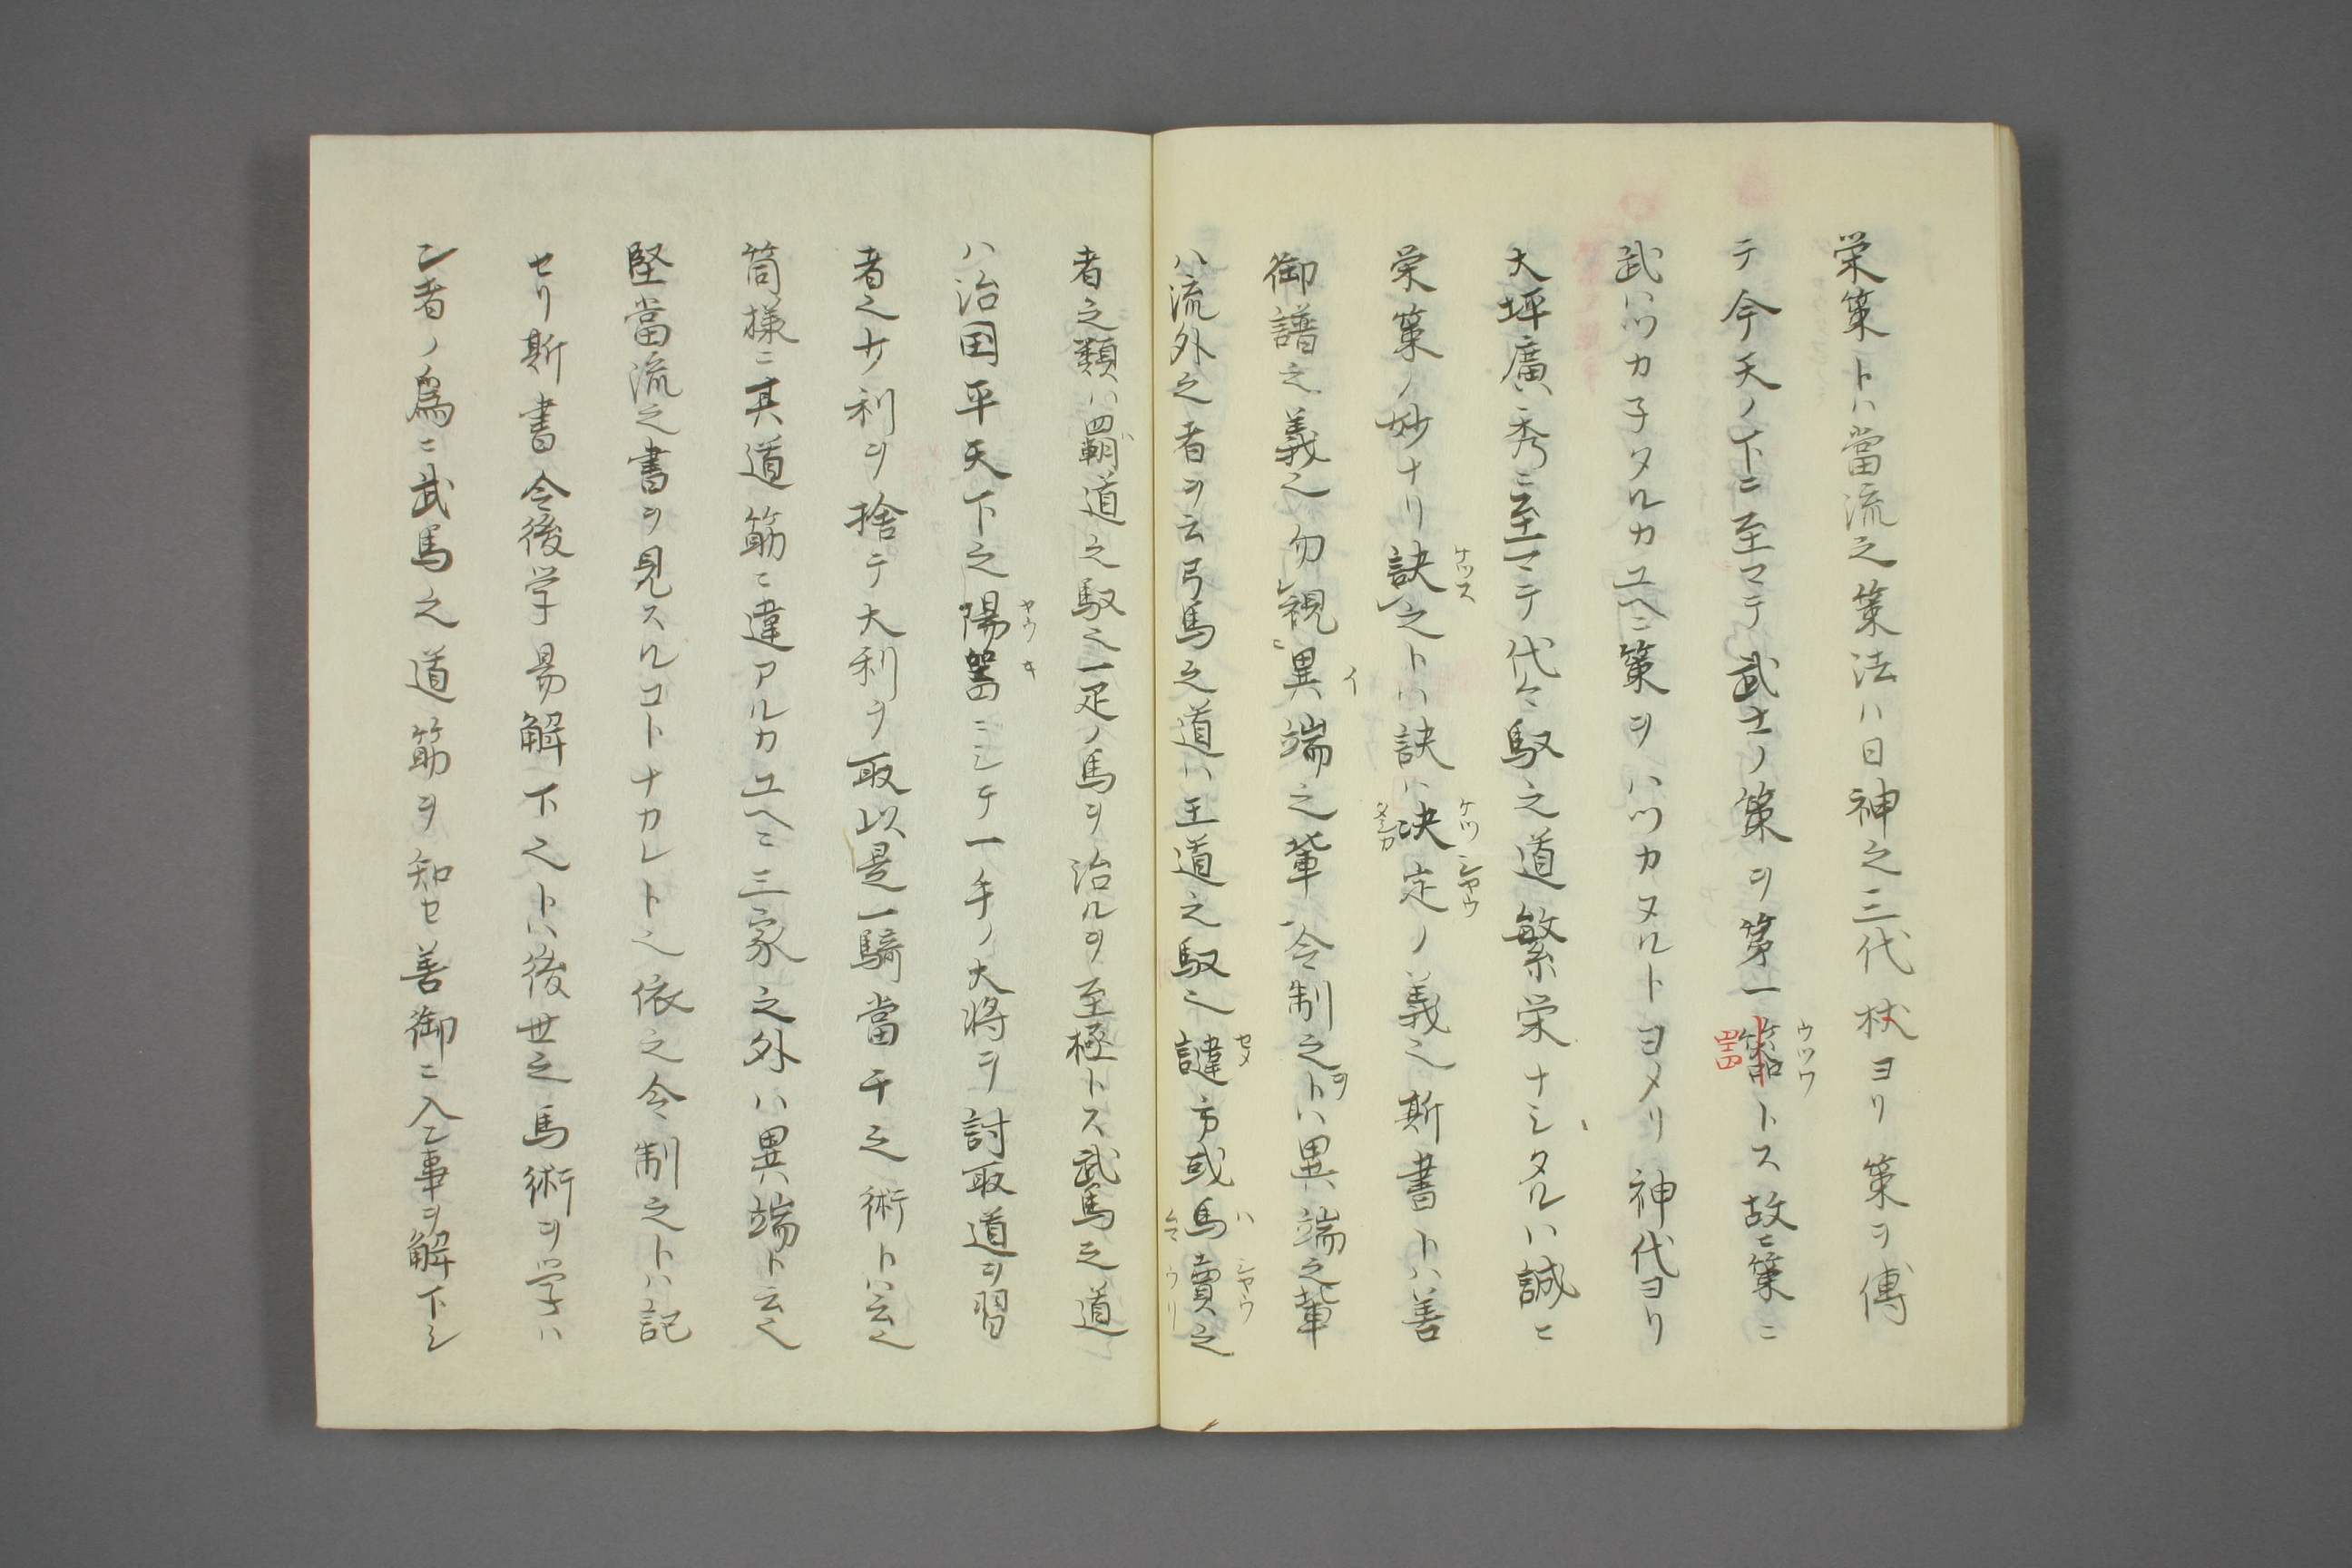 栄策トハ當流之策法ハ日神之三代杖ヨリ策ヲ傳
テ今天ノ下ニ至マテ武士ノ策ヲ第一トス故ニ策ニ
武ハツカ子タルカユヘニ策ヲハツカヌルトヨメリ神代ヨリ
大坪廣秀ニ至マテ代々馭之道繁栄ナシタルハ誠ニ
栄策ノ妙ナリ訣之トハ訣ハ决定ノ義也斯書トハ善
御譜之義也勿視異端之輩令制之トハ異端之輩
ハ流外之者ヲ云弓馬之道ハ王道之馭也韃方或馬賣之
者之類ハ覇道之馭也一疋ノ馬ヲ治ルヲ至極トス武馬之道
ハ治国平天下之陽噐ニシテ一手ノ大将ヲ討取道ヲ習
者也サ利ヲ捨テ大利ヲ取以是一騎當千之術トハ云也
筒様ニ其道筋ニ違アルカユヘニ三家之外ハ異端ト云也
堅當流之書ヲ見スルコトナカレト也依之令制之トハ記
セリ斯書令後学易解下之トハ後世之馬術ヲ学ハ
ン者ノ為ニ武馬之道筋ヲ知セ善御ニ入事ヲ解下シ